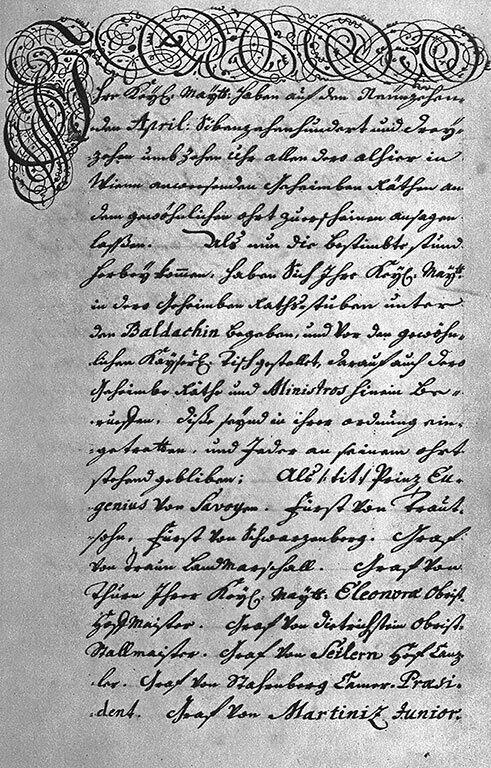 Ihre Kayl. Maytt: haben auf den Neünzehen-
den April: Sibenzehenhundert und drey-
zehen umb zehen uhr allen dero alhier in
Wienn anwesenden Geheimben Räthen an
dem gewöhnlichen ohrt zuerscheinen ansagen
lassen. Als nun die bestimbte stund
herbey kommen, haben Sich Ihre Kayl. Maytt
in dero Geheimben Raths-stuben unter
den Baldachin begeben, und vor den gewöhn-
lichen Kayserl. Tisch gestellet, darauf auch dero
Geheimbe Räthe und Ministros hinein Be-
rueffen, diße seynd in ihrer ordnung ein-
getretten, und Jeder an seinem ohrt
stehend gebliben; Als /:tit:/ Prinz Eu-
genius von Savoyen. Fürst von Traut-
sohn, Fürst von Schwarzenberg. Graf
von Traun LandMarschall. Graf von
Thurn Ihrer Kayl. Maytt: Eleonoræ Obrist
HoffMaister. Graf von Dietrichstein Obrist-
Stallmaister. Graf von Seilern Hof Canz-
ler. Graf von Stahrenberg Camer-Præsi-
dent. Graf von Martiniz Junior.